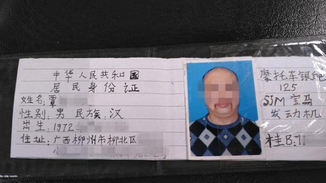 中华人民共和國
居民身份证
姓名 覃
性别: 男 民族: 汉
出生: 1972
住址: 广西柳州市柳北区
摩托车银
125
SJM 宝马
发动机
桂B.71